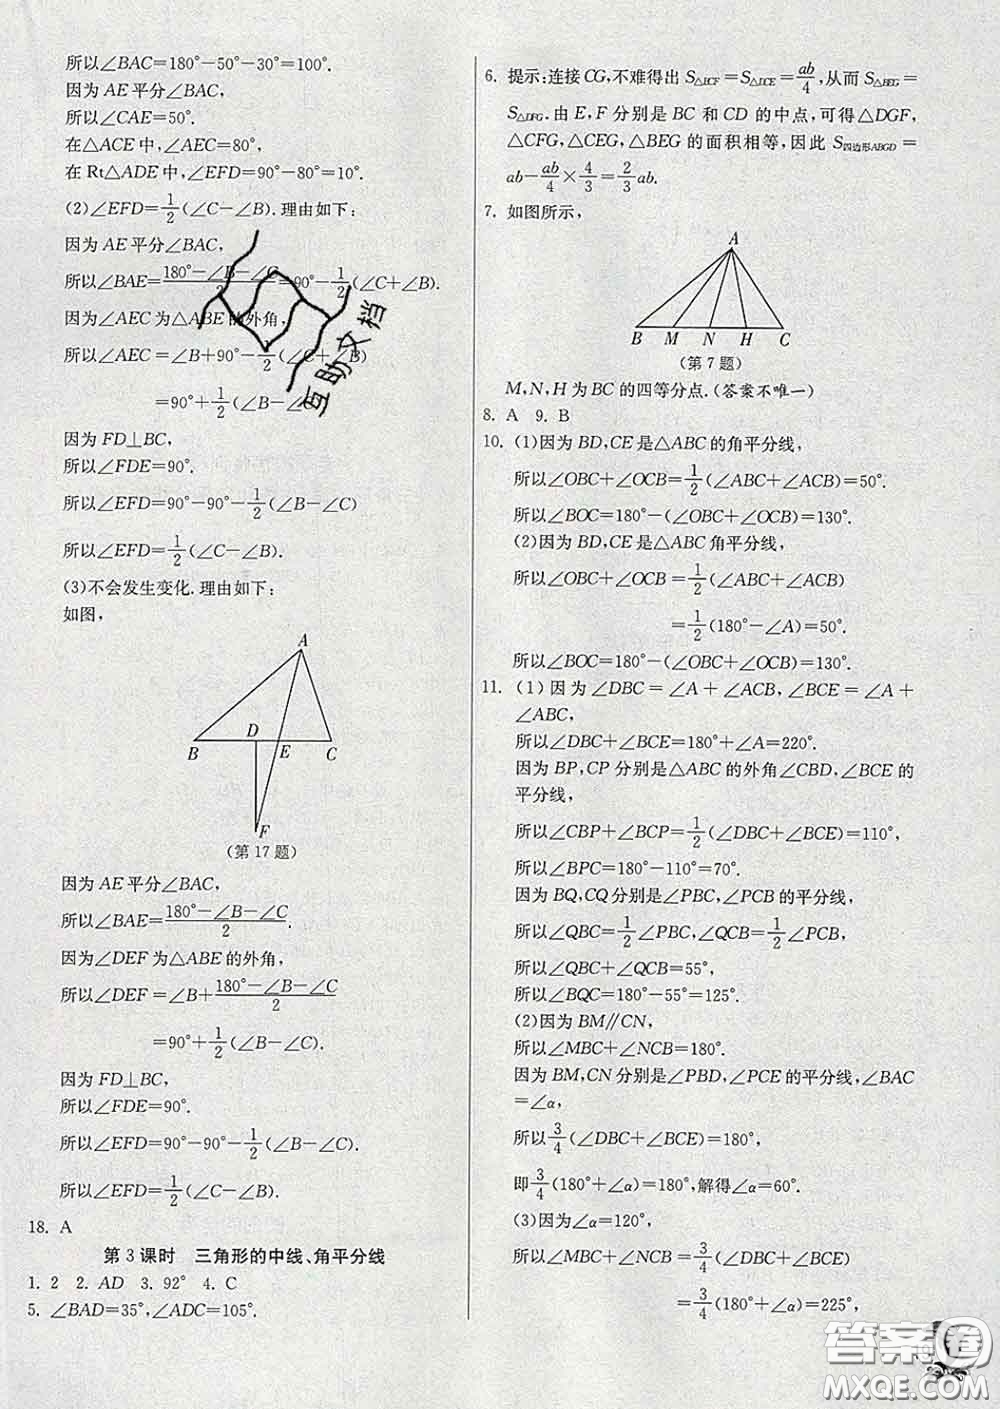 所以∠BAC=180°-50°-30°=100°.
因为 AE 平分∠BAC,
所以∠CAE=50°.
在△ACE 中,∠AEC=80°,
在 Rt△ADE 中,∠EFD=90°-80°=10°.
(2)∠EFD=1/2(∠C-∠B).理由如下:
因为 AE 平分∠BAC,
所以∠BAE=(180°-∠B-∠C)/2=90°-1/2(∠C+∠B).
因为∠AEC 为△ABE 的外角,
所以∠AEC=∠B+90°-1/2(∠C+∠B)
=90°+1/2(∠B-∠C)
因为 FD⊥BC,
所以∠FDE=90°.
所以∠EFD=90°-90°-1/2(∠B-∠C)
所以∠EFD=1/2(∠C-∠B).
(3)不会发生变化.理由如下:
如图,
A
B
D
E
C
F
(第 17 题)
因为 AE 平分∠BAC,
所以∠BAE=(180°-∠B-∠C)/2.
因为∠DEF 为△ABE 的外角,
所以∠DEF=∠B+(180°-∠B-∠C)/2
=90°+1/2(∠B-∠C).
因为 FD⊥BC,
所以∠FDE=90°.
所以∠EFD=90°-90°-1/2(∠B-∠C).
所以∠EFD=1/2(∠C-∠B).
18. A
第 3 课时 三角形的中线、角平分线
1. 2 2. AD 3. 92° 4. C
5. ∠BAD=35°,∠ADC=105°.
6. 提示:连接 CG,不难得出 S△BCF=S△DCE=ab/4,从而 S△BEG=
S△DFG.由 E,F 分别是 BC 和 CD 的中点,可得△DGF,
△CFG,△CEG,△BEG 的面积相等,因此 S四边形ABGD=
ab-ab/4×4/3=2/3ab.
7. 如图所示,
A
B M N H C
(第 7 题)
M,N,H 为 BC 的四等分点.(答案不唯一)
8. A 9. B
10. (1)因为 BD,CE 是△ABC 的角平分线,
所以∠OBC+∠OCB=1/2(∠ABC+∠ACB)=50°.
所以∠BOC=180°-(∠OBC+∠OCB)=130°.
(2)因为 BD,CE 是△ABC 角平分线,
所以∠OBC+∠OCB=1/2(∠ABC+∠ACB)
=1/2(180°-∠A)=50°.
所以∠BOC=180°-(∠OBC+∠OCB)=130°.
11. (1)因为∠DBC=∠A+∠ACB,∠BCE=∠A+
∠ABC,
所以∠DBC+∠BCE=180°+∠A=220°.
因为 BP,CP 分别是△ABC 的外角∠CBD,∠BCE 的
平分线,
所以∠CBP+∠BCP=1/2(∠DBC+∠BCE)=110°,
所以∠BPC=180°-110°=70°.
因为 BQ,CQ 分别是∠PBC,∠PCB 的平分线,
所以∠QBC=1/2∠PBC,∠QCB=1/2∠PCB,
所以∠QBC+∠QCB=55°,
所以∠BQC=180°-55°=125°.
(2)因为 BM∥CN,
所以∠MBC+∠NCB=180°.
因为 BM,CN 分别是∠PBD,∠PCE 的平分线,∠BAC
=∠α,
所以3/4(∠DBC+∠BCE)=180°,
即3/4(180°+∠α)=180°,解得∠α=60°.
(3)因为∠α=120°,
所以∠MBC+∠NCB=3/4(∠DBC+∠BCE)
=3/4(180°+∠α)=225°,
互助文档
答案圈
MXQE.COM